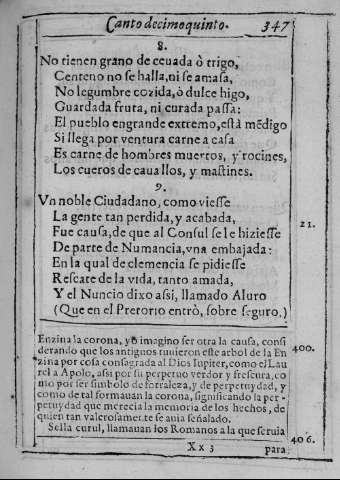 Canto decimoquinto. 347
8.
No tienen grano de ceuada ò trigo,
Centeno no se halla, ni se amasa,
No legumbre cozida, ò dulce higo,
Guardada fruta, ni curada passa:
El pueblo en grande extremo, està mẽdigo
Si llega por ventura carne a casa
Es carne de hombres muertos, y rocines,
Los cueros de cauallos, y mastines.
9.
Vn noble Ciudadano, como viesse
La gente tan perdida, y acabada,
Fue causa, de que al Consul se le hiziesse
21.
De parte de Numancia, vna embajada:
En la qual de clemencia se pidiesse
Rescate de la vida, tanto amada,
Y el Nuncio dixo assi, llamado Aluro
(Que en el Pretorio entrò, sobre seguro.)
Enzina la corona, yo imagino ser otra la causa, consi
derando que los antiguos tuuieron este arbol de la En
400.
zina por cosa consagrada al Dios Iupiter, como el Lau
rel a Apolo, assi por su perpetuo verdor y frescura, co
mo por ser simbolo de fortaleza, y de perpetuydad, y
como de tal formauan la corona, significando la per-
petuydad que merecia la memoria de los hechos, de
quien tan valerosamente se auia señalado.
Sella curul, llamauan los Romanos a la que seruia
406.
Xx 3 para